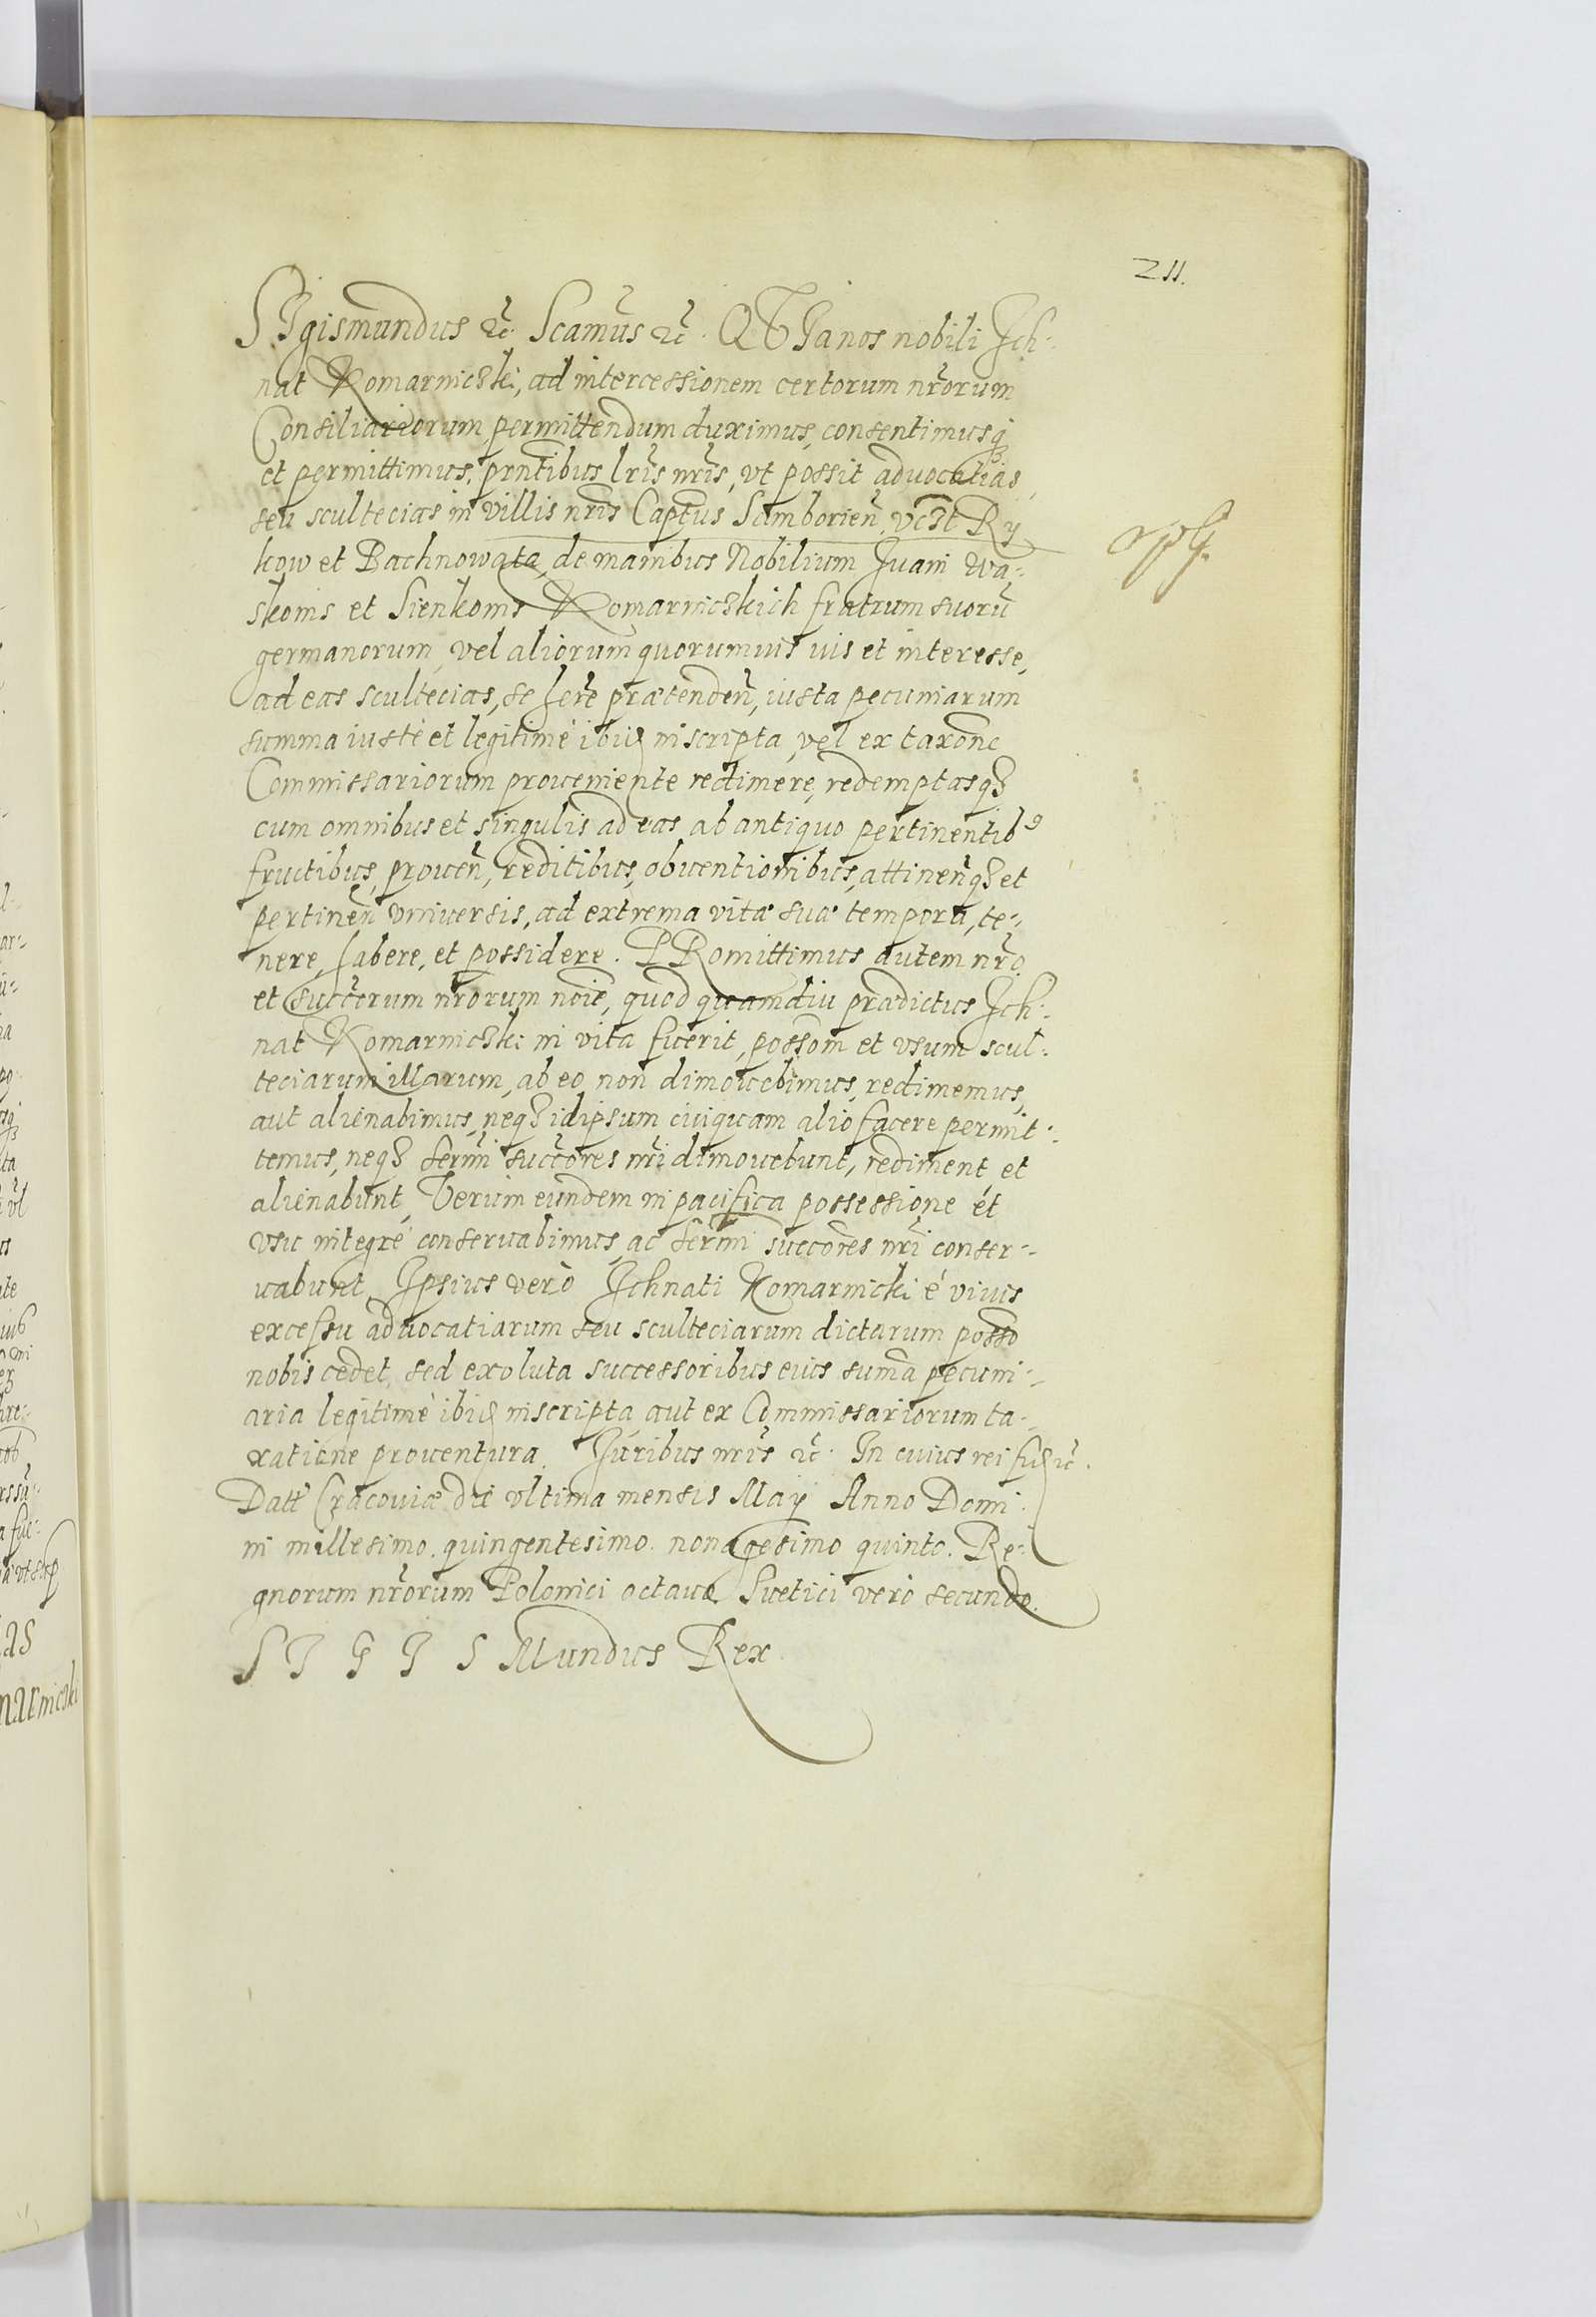 211.
SIgismundus &c̃. Scamus &c̃. QVIa nos nobili Ich-
nat Komarniczki, ad intercessionem certorum nr̃orum
Consiliariorum permittendum duximus, consentimusq₃
et permittimus, prñtibus lr̃is nr̃is, vt possit aduocatias
seu scultecias in villis nr̃is Captũs Samborieñ, vcȝt Ry
kow et Bachnowata, de manibus Nobilium Iuani Wa-
skonis et Sienkonis Komarniczkich fratrum suorũ
germanorum, vel aliorum quorumuis ius et interesse,
ad eas scultecias, se hr̃e prætendeñ, iusta pecuniarum
summa iustè et legitimè ibid inscripta, vel ex taxõne
Commissariorum proueniente redimere, redemptasqȝ
cum omnibus et singulis ad eas ab antiquo pertinentibꝰ
fructibus, proueñ, reditibus, obuentionibus, attineñqȝ et
pertineñ vniuersis, ad extrema vitæ suæ tempora, te-
nere, habere, et possidere. PRomittimus autem nr̃o
et succ̃orum nr̃orum noĩe, quod quamdiu prædictus Ich-
nat Komarniczki in vita fuerit, possõm et vsum scul-
teciarum illarum, ab eo non dimouebimus, redimemus,
aut alienabimus, neqȝ idipsum cuiquam alio facere permit-
temus, neqȝ serm̃i succ̃ores nr̃i dimouebunt, rediment, et
alienabunt, Verum eundem in pacifica possessione et
vsu integrè conseruabimus, ac serm̃i succ̃ores nr̃i conser-
uabunt. Ipsius verò Ichnati Komarnicki è viuis
excessu aduocatiarum seu sculteciarum dictarum possõ
nobis cedet, sed exoluta successoribus eius sum̃a pecuni-
aria legitimè ibid inscripta aut ex Commissariorum ta-
xatione prouentura. Iuribus nr̃is &c̃. In cuius rei fid &c̃.
Datt̃ Cracouiæ die vltima mensis May Anno Domi-
ni millesimo quingentesimo nonagesimo quinto. Re-
gnorum nr̃orum Polonici octauo Suetici verò secundo.
SIGISMundus Rex